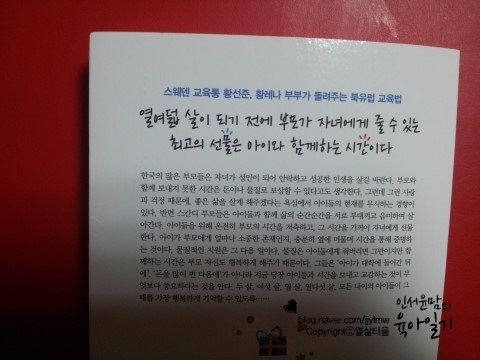 스웨덴 교육통 황선준, 황레나 부부가 들려주는 북유럽 교육법
열여덟 살이 되기 전에 부모가 자녀에게 줄 수 있는
최고의 선물은 아이와 함께하는 시간이다
한국의 많은 부모들은 자녀가 성인이 되어 안락하고 성공한 인생을 살길 바란다. 부모와
함께 보내지 못한 시간은 돈이나 물질로 보상할 수 있다고도 생각한다. 그런데 그런 사랑
과 걱정 때문에, 좋은 삶을 살게 해주겠다는 욕심에서 아이들의 현재를 무시하는 경향이
있다. 반면 스칸디 부모들은 아이들과 함께 삶의 순간순간을 서로 부대끼고 음미하며 살
아간다. 아이들을 위해 온전히 부모의 시간을 저축하고, 그 시간을 기꺼이 자녀에게 선물
한다. 아이가 부모에게 얼마나 소중한 존재인지, 충분히 옆에 머물며 시간을 통해 증명하
는 것이다. 물질적인 지원은 그 다음 일이다. 물질은 아이들에게 줘버리면 그만이지만 함
께하는 시간은 부모 자신도 행복하게 해주기 때문이다. 그들은 '아이가 대학에 들어간 뒤
에', '돈을 많이 번 다음에'가 아니라 지금 당장 아이들과 시간을 보내고 교감하는 것이 무
엇보다 중요하다는 것을 안다. 두 살, 여섯 살, 열 살, 열다섯 살, 모든 나이의 아이들이 그
때를 가장 행복하게 기억할 수 있도록……
인서윤맘의
육아일기
blog.naver.com/jjylmw
Copyrightⓒ열살터울